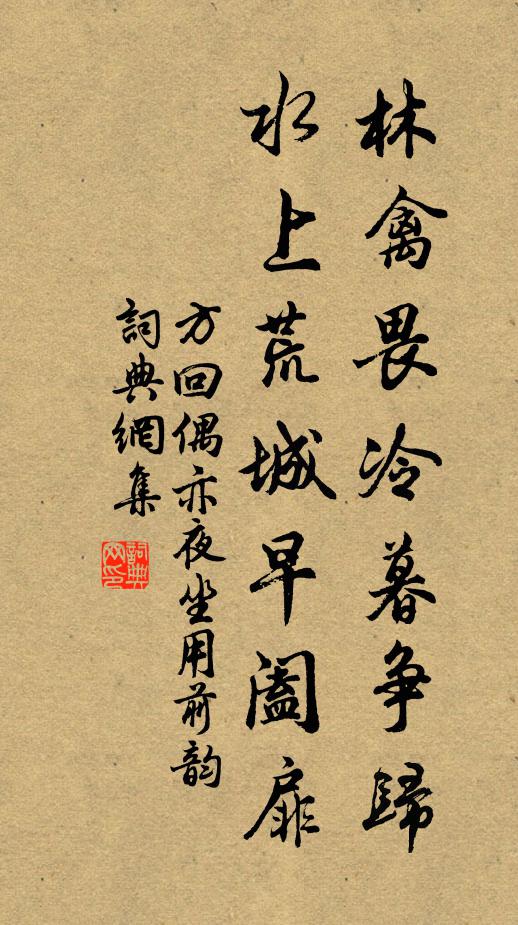 林禽畏冷暮爭歸
水上荒城早闔扉
方回偶亦夜坐用前韵
詞典網集
詞典網印